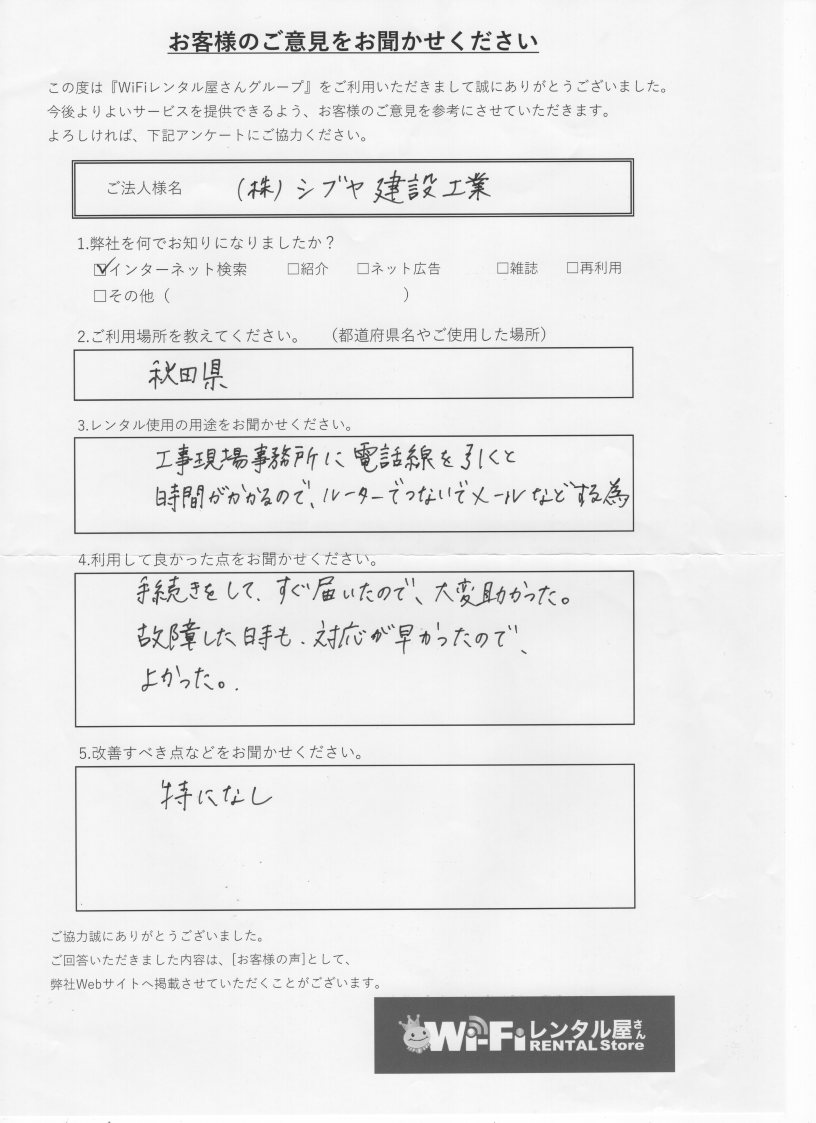 お客様のご意見をお聞かせください
この度は『WiFiレンタル屋さんグループ』をご利用いただきまして誠にありがとうございました。
今後よりよいサービスを提供できるよう、お客様のご意見を参考にさせていただきます。
よろしければ、下記アンケートにご協力ください。
ご法人様名 (株)シブヤ建設工業
1.弊社を何でお知りになりましたか？
☑インターネット検索 □紹介 □ネット広告 □雑誌 □再利用
□その他（ ）
2.ご利用場所を教えてください。 （都道府県名やご使用した場所）
秋田県
3.レンタル使用の用途をお聞かせください。
工事現場事務所に電話線を引くと
時間がかかるので、ルーターでつないでメールなどする為
4.利用して良かった点をお聞かせください。
手続きをして、すぐ届いたので、大変助かった。
故障した時も、対応が早かったので、
よかった。
5.改善すべき点などをお聞かせください。
特になし
ご協力誠にありがとうございました。
ご回答いただきました内容は、[お客様の声]として、
弊社Webサイトへ掲載させていただくことがございます。
Wi-Fiレンタル屋さん
RENTAL Store